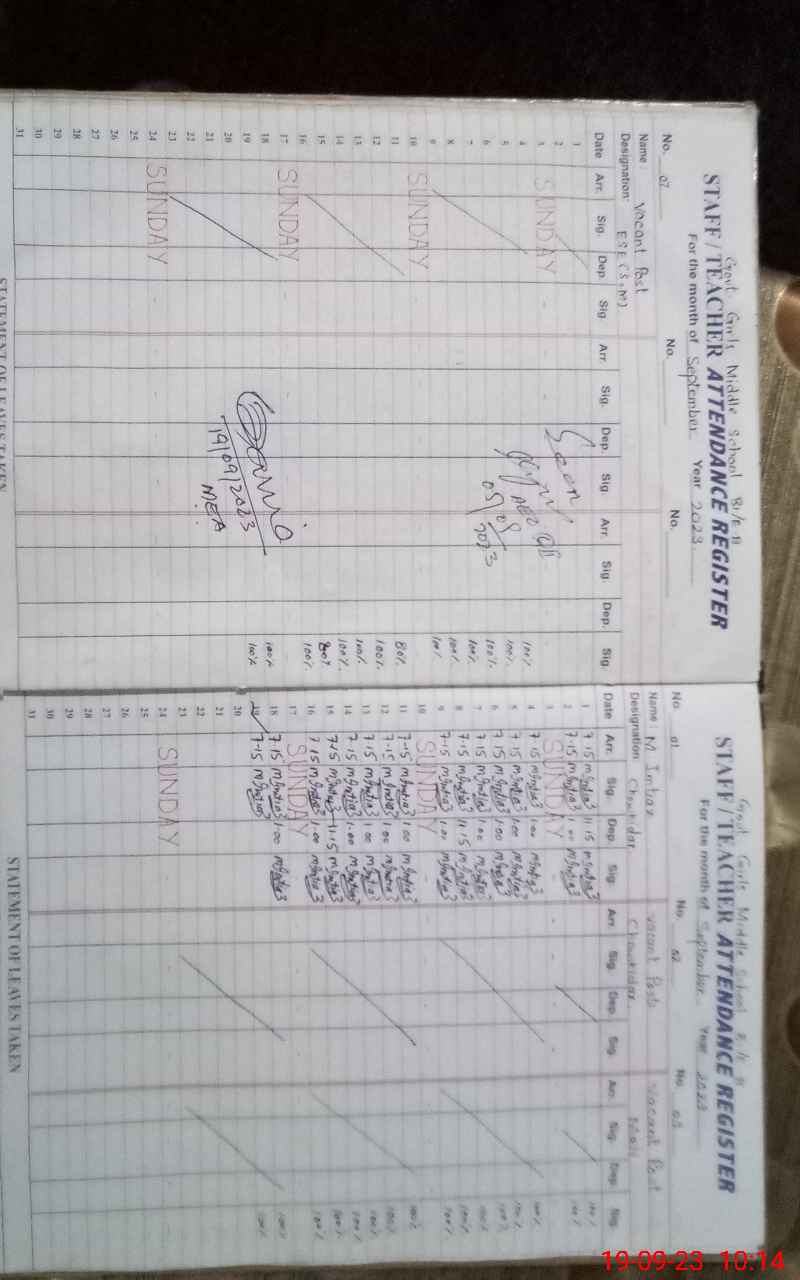 Govt. Girls Middle School
STAFF / TEACHER ATTENDANCE REGISTER
For the month of September Year 2023
No. 07 No. No.
Name: Vacant Post
Designation: ESE (S,M)
Date Arr. Sig. Dep. Sig. Arr. Sig. Dep. Sig. Arr. Sig. Dep. Sig.
1
2
3 SUNDAY Seen
4 100%
5 100% 05/09/2023
6 100%
7 100%
8 100%
9 100%
10 SUNDAY
11 80%
12 100%
13 100%
14 100%
15 80%
16 100%
17 SUNDAY
18 100%
19 100%
20 19/09/2023
21 MEA
22
23
24 SUNDAY
25
26
27
28
29
30
31
STATEMENT OF LEAVES TAKEN
Govt Girls Middle School
STAFF / TEACHER ATTENDANCE REGISTER
For the month of September Year 2023
No. 01 No. 02 No. 03
Name: M Imtiaz Vacant Post Vacant Post
Designation Chowkidar Chowkidar
Date Arr. Sig. Dep. Sig. Arr. Sig. Dep. Sig. Arr. Sig. Dep. Sig.
1 7.15 11.15 100%
2 7.15 1.00 100%
3 SUNDAY
4 7.15 1.00 100%
5 7.15 1.00 100%
6 7.15 1.00 100%
7 7.15 1.00 100%
8 7.15 11.15 100%
9 7.15 1.00 100%
10 SUNDAY
11 7.15 1.00 100%
12 7.15 1.00 100%
13 7.15 1.00 100%
14 7.15 1.00 100%
15 7.15 11.15 100%
16 7.15 1.00 100%
17 SUNDAY
18 7.15 1.00 100%
19 7.15 100%
20
21
22
23
24 SUNDAY
25
26
27
28
29
30
31
STATEMENT OF LEAVES TAKEN
19-09-23 10:14